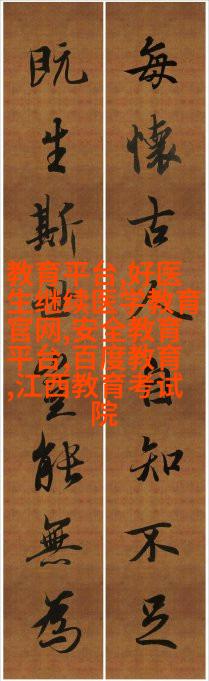 每懷古人自知不足
既生斯世豈能無為
教育平台,好医
生继续医学教育
官网,安全教育
平台,百度教育
,江西教育考试
院